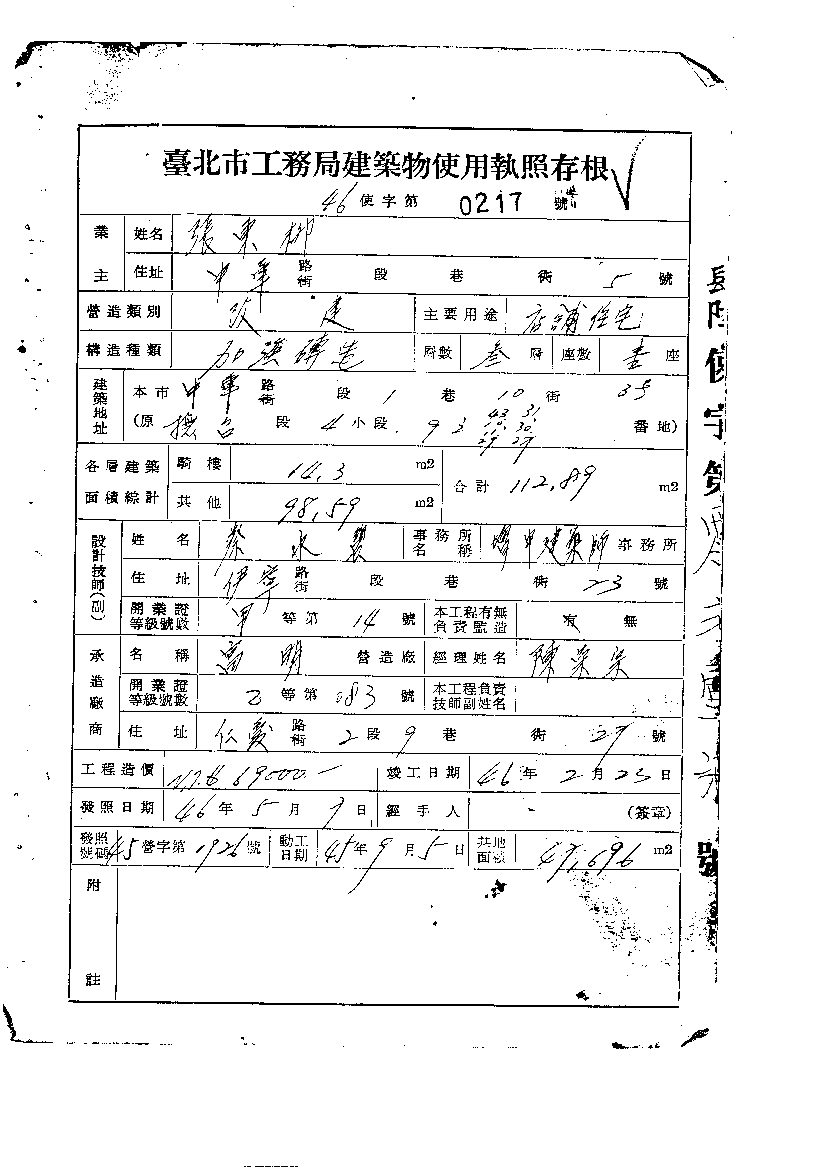 臺北市工務局建築物使用執照存根
46 使字第 0217 號
業主 姓名 張東柳
住址 中華 路街 段 巷 衖 5 號
營造類別 改建 主要用途 店舖住宅
構造種類 加强磚造 層數 叁 層 座數 壹 座
建築地址 本市 中華 路街 段 1 巷 10 衖 35
(原 撫台 段 4 小段 93 43 31 30 29 27 番地)
各層建築面積綜計 騎樓 14.3 m2 合計 112.89 m2
其他 98.59 m2
設計技師(副) 姓名 蔡水 事務所名稱 建築師 事務所
住址 伊寧 路街 段 巷 衖 23 號
開業證等級號數 甲 等第 14 號 本工程有無負責監造 有 無
承造廠商 名稱 高明 營造廠 經理姓名 陳
開業證等級號數 乙 等第 083 號 本工程負責技師副姓名
住址 仁愛 路街 2 段 9 巷 衖 27 號
工程造價 N.T.$ 69000.- 竣工日期 46 年 2 月 23 日
發照日期 46 年 5 月 9 日 經手人 (簽章)
發照號碼 45 營字第 1926 號 動工日期 45 年 9 月 5 日 共地面積 49.696 m2
附註
使字第
號